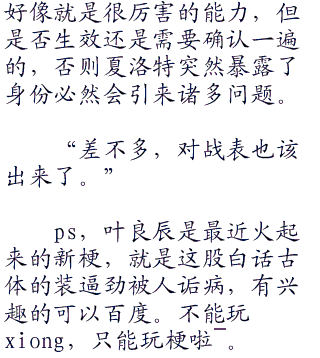 好像就是很厉害的能力，但
是否生效还是需要确认一遍
的，否则夏洛特突然暴露了
身份必然会引来诸多问题。
“差不多，对战表也该
出来了。”
ps，叶良辰是最近火起
来的新梗，就是这股白话古
体的装逼劲被人诟病，有兴
趣的可以百度。不能玩
xiong，只能玩梗啦¯。